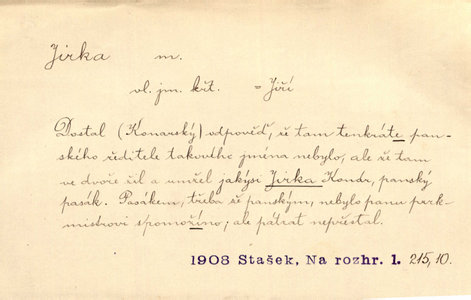 Jirka m.
vl. jm. křt. = Jiří
Dostal (Konarský) odpověď, že tam tenkráte pan-
ského ředitele takového jména nebylo, ale že tam
ve dvoře žil a umřel jakýsi Jirka Konár, panský
pasák. Pasákem, třeba že panským, nebylo panu park-
mistrovi spomoženo; ale pátrat nepřestal.
1908 Stašek, Na rozhr. 1. 215,10.